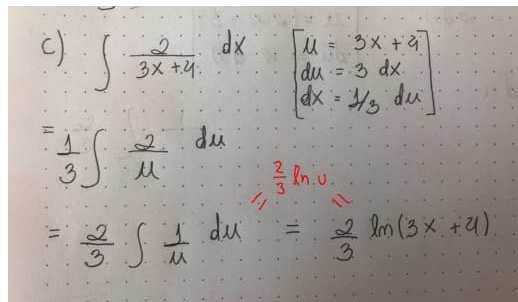 c) ∫ 2/(3x+4) dx [u = 3x + 4
du = 3 dx
dx = 1/3 du]
= 1/3 ∫ 2/u du
2/3 ln.u
= 2/3 ∫ 1/u du = 2/3 ln(3x + 4)